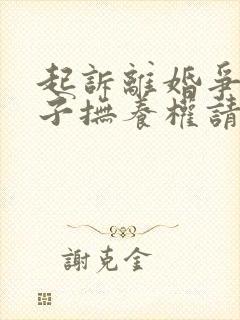 起訴離婚爭
子撫養權請
謝克金